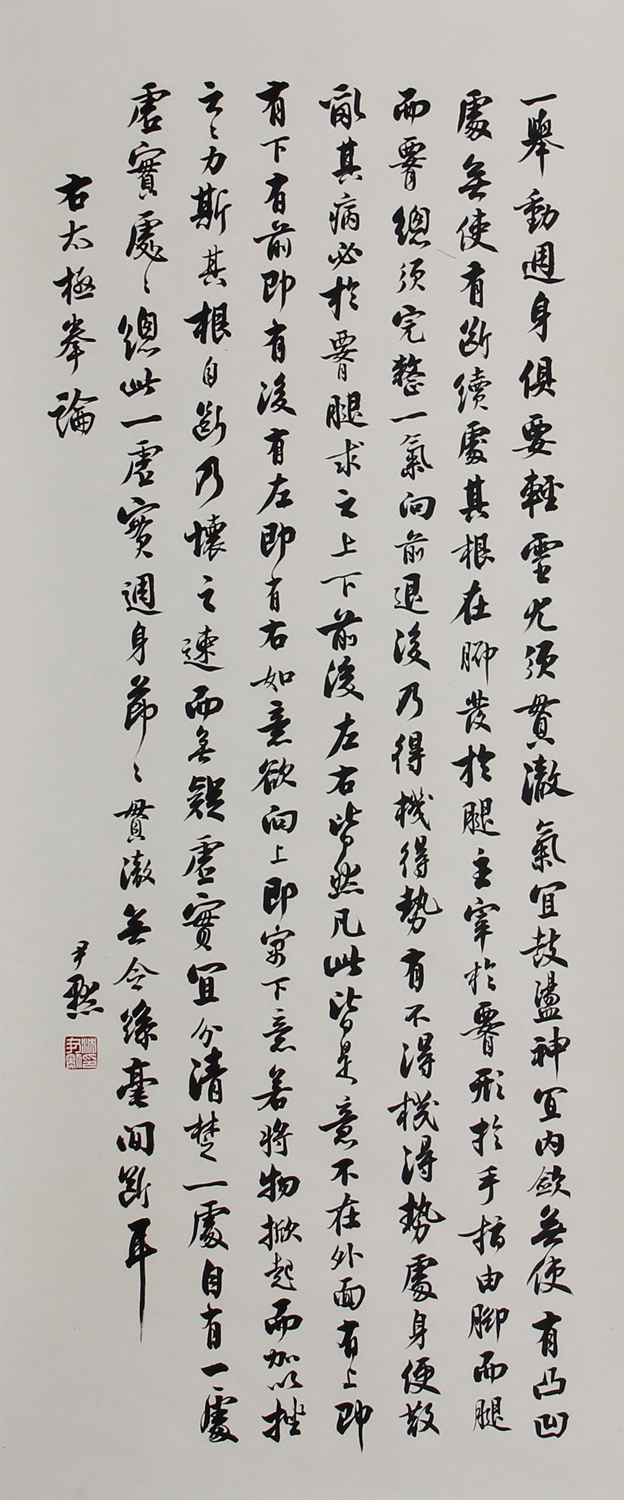 一舉動週身俱要輕靈尤須貫澈氣宜鼓盪神宜內斂無使有凸凹
處無使有斷續處其根在腳發於腿主宰於腰形於手指由腳而腿
而腰總須完整一氣向前退後乃得機得勢有不得機得勢處身便散
亂其病必於腰腿求之上下前後左右皆然凡此皆是意不在外面有上即
有下有前即有後有左即有右如意欲向上即寓下意若將物掀起而加以挫
之之力斯其根自斷乃懷之速而無疑虛實宜分清楚一處自有一處
虛實處處總此一虛實週身節節貫澈無令絲毫間斷耳
右太極拳論
尹默